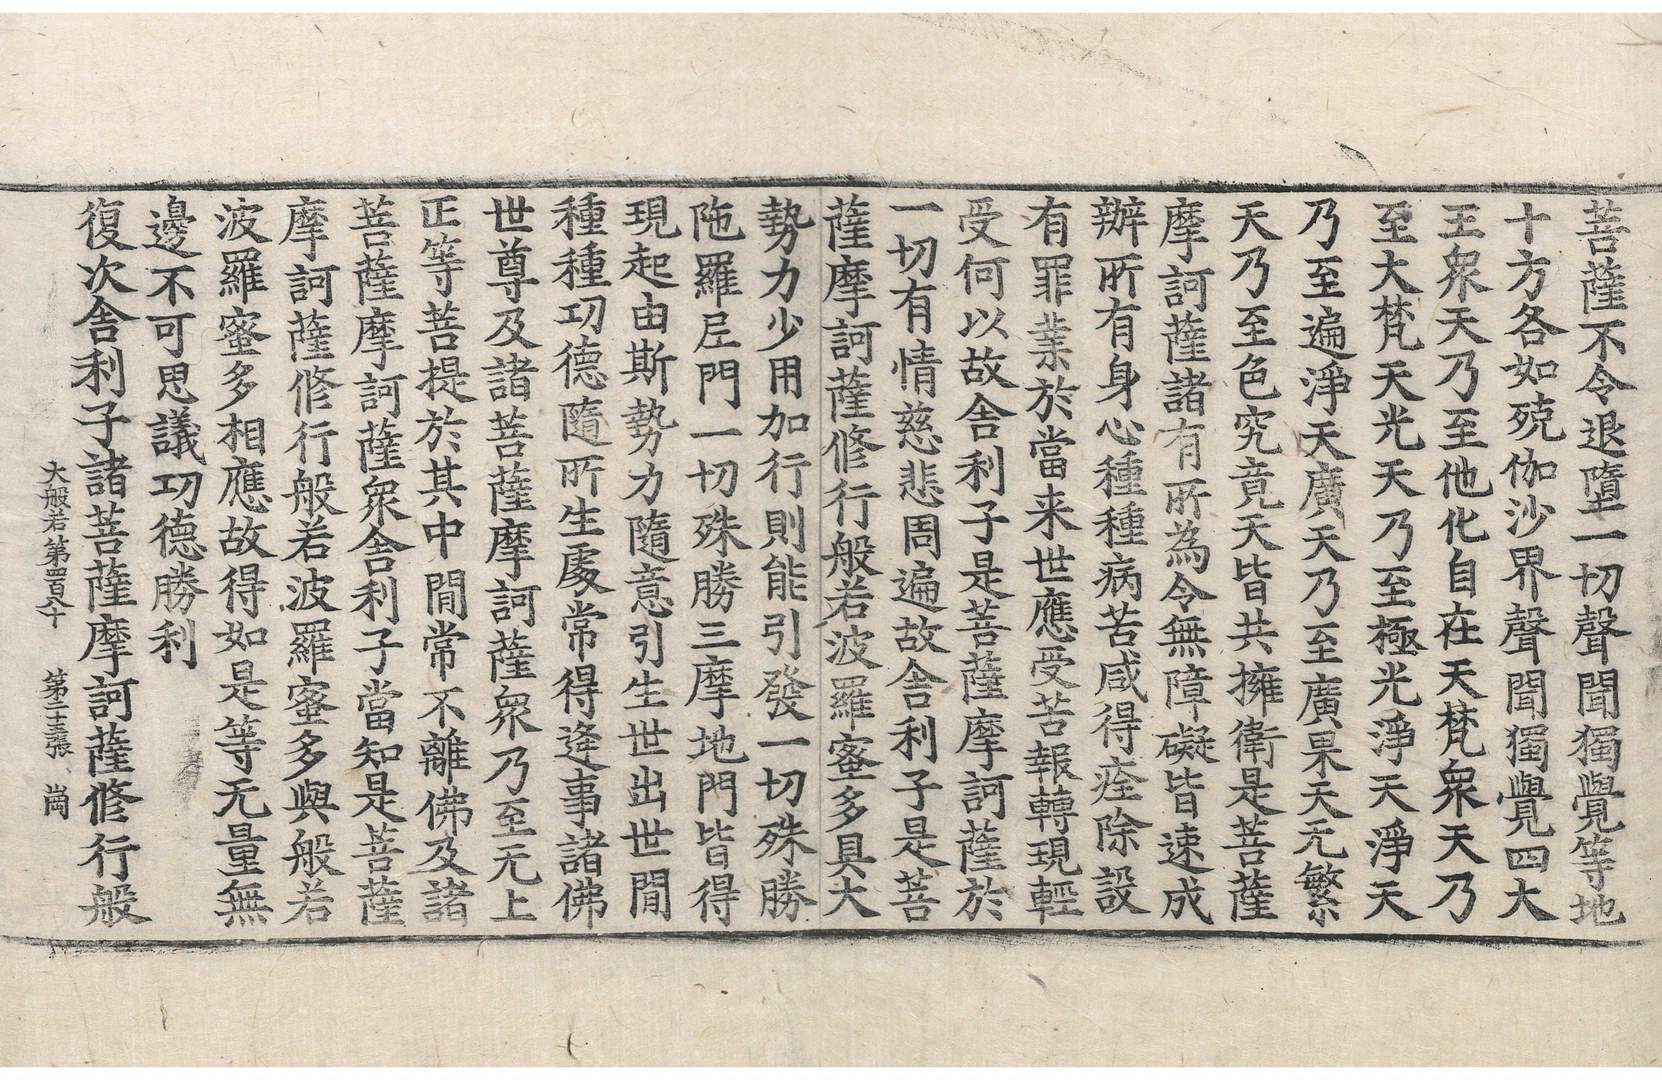 菩薩不令退墮一切聲聞獨覺等地
十方各如殑伽沙界聲聞獨覺四大
王衆天乃至他化自在天梵衆天乃
至大梵天光天乃至極光淨天淨天
乃至遍淨天廣天乃至廣果天无繁
天乃至色究竟天皆共擁衛是菩薩
摩訶薩諸有所為令無障礙皆速成
辦所有身心種種病苦咸得痊除設
有罪業於當来世應受苦報轉現輕
受何以故舍利子是菩薩摩訶薩於
一切有情慈悲周遍故舍利子是菩
薩摩訶薩修行般若波羅蜜多具大
勢力少用加行則能引發一切殊勝
陁羅尼門一切殊勝三摩地門皆得
現起由斯勢力隨意引生世出世間
種種功德隨所生處常得逢事諸佛
世尊及諸菩薩摩訶薩衆乃至无上
正等菩提於其中閒常不離佛及諸
菩薩摩訶薩衆舍利子當知是菩薩
摩訶薩修行般若波羅蜜多與般若
波羅蜜多相應故得如是等无量無
邊不可思議功德勝利
復次舍利子諸菩薩摩訶薩修行般
大般若第四百八十 第二十三張 崗